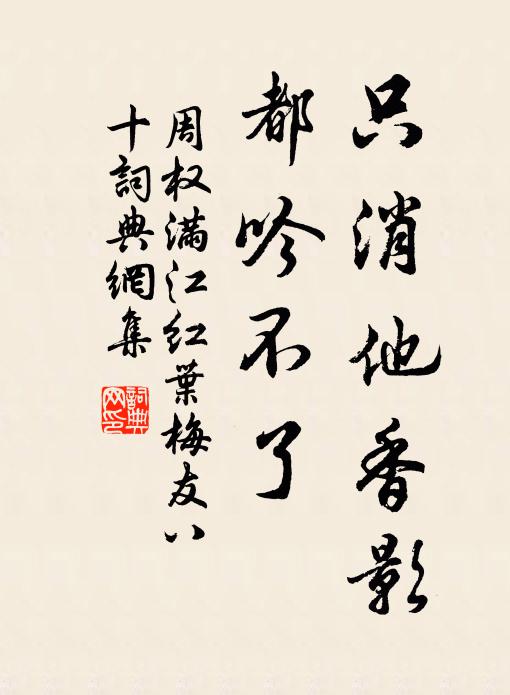 只消他香影
都吟不了
周权满江红葉梅友八
十詞典網集
詞典
网印